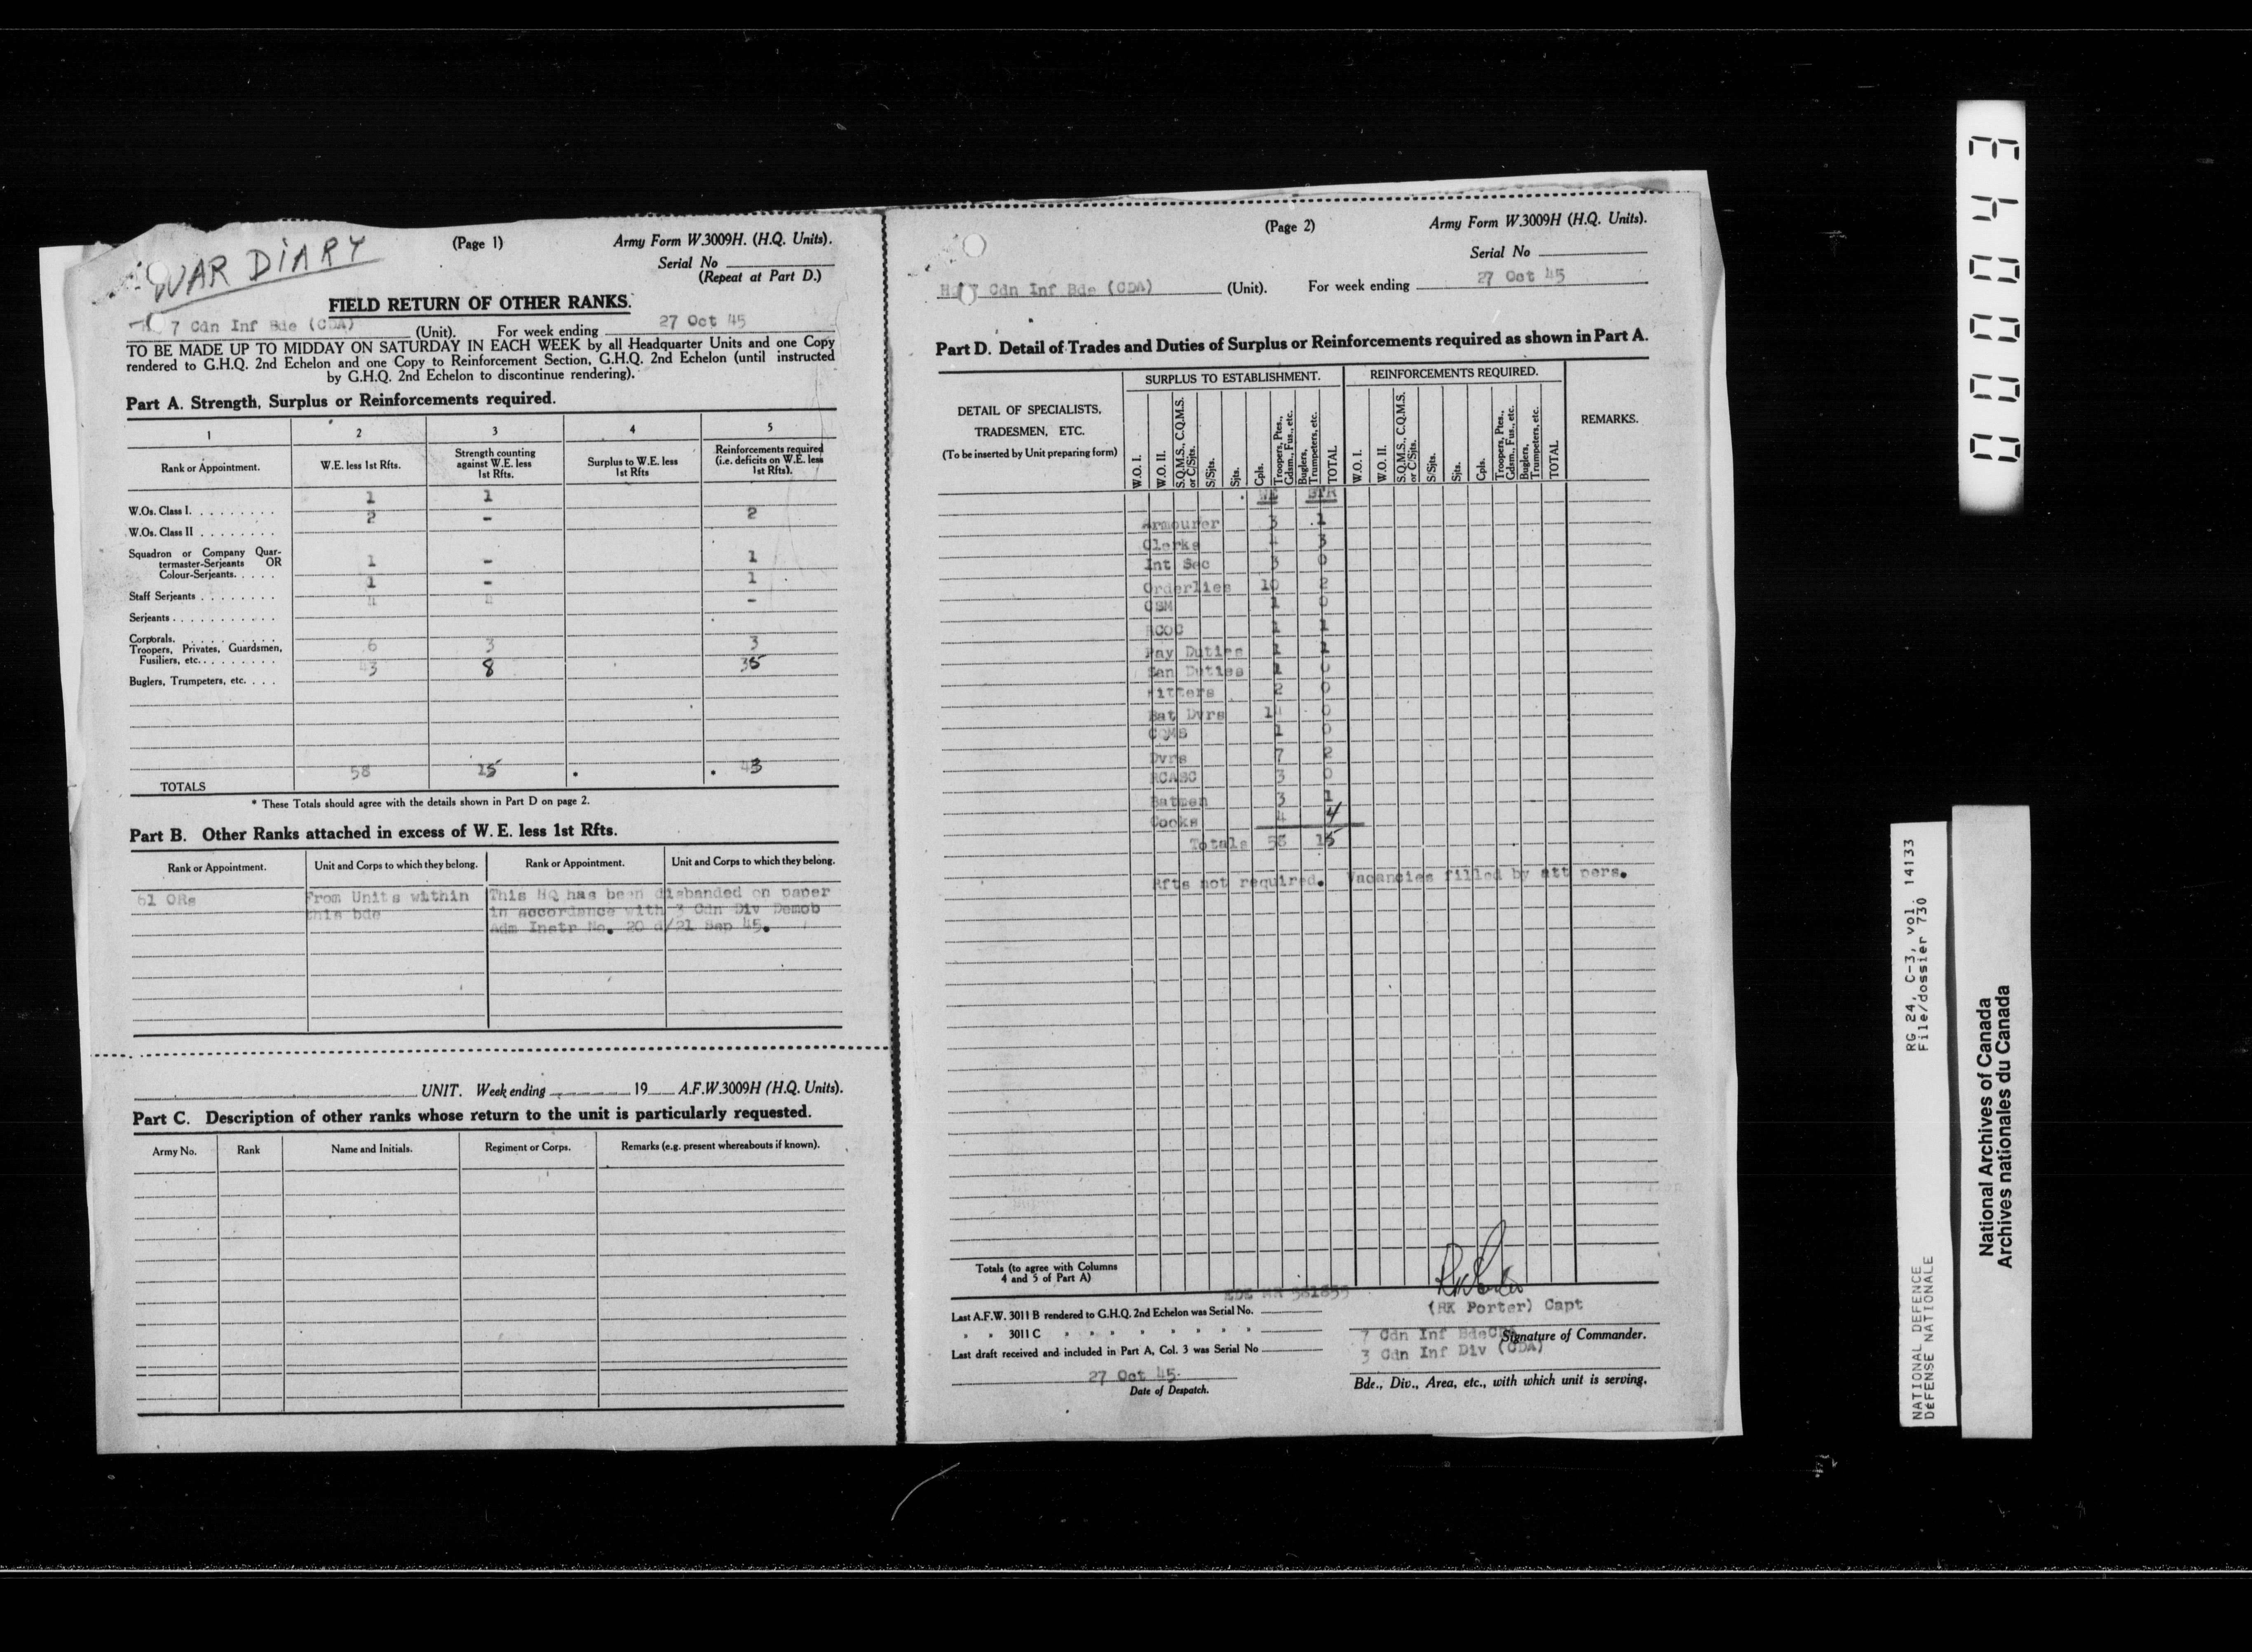 WAR DIARY
(Page 1)
Army Form W.3009H. (H.Q. Units).
Serial No
(Repeat at Part D.)
FIELD RETURN OF OTHER RANKS.
7 Cdn Inf Bde (CDA) (Unit). For week ending 27 Oct 45
TO BE MADE UP TO MIDDAY ON SATURDAY IN EACH WEEK by all Headquarter Units and one Copy
rendered to G.H.Q. 2nd Echelon and one Copy to Reinforcement Section, G.H.Q. 2nd Echelon (until instructed
by G.H.Q. 2nd Echelon to discontinue rendering).
Part A. Strength, Surplus or Reinforcements required.
1 2 3 4 5
Rank or Appointment. W.E. less 1st Rfts. Strength counting against W.E. less 1st Rfts. Surplus to W.E. less 1st Rfts Reinforcements required (i.e. deficits on W.E. less 1st Rfts).
W.Os. Class I. 1 1
W.Os. Class II 2 - 2
Squadron or Company Quar-
termaster-Serjeants OR
Colour-Serjeants. 1 - 1
Staff Serjeants 1 - 1
Serjeants 4 4 -
Corporals. 6 3 3
Troopers, Privates, Guardsmen,
Fusiliers, etc. 43 8 35
Buglers, Trumpeters, etc.
TOTALS 58 15 . . 43
* These Totals should agree with the details shown in Part D on page 2.
Part B. Other Ranks attached in excess of W.E. less 1st Rfts.
Rank or Appointment. Unit and Corps to which they belong. Rank or Appointment. Unit and Corps to which they belong.
61 ORs From Units within This HQ has been disbanded on paper
this bde in accordance with 3 Cdn Div Demob
Adm Instr No. 20 d/21 Sep 45.
UNIT. Week ending 19 A.F.W.3009H (H.Q. Units).
Part C. Description of other ranks whose return to the unit is particularly requested.
Army No. Rank Name and Initials. Regiment or Corps. Remarks (e.g. present whereabouts if known).
(Page 2)
Army Form W.3009H (H.Q. Units).
Serial No
7 Cdn Inf Bde (CDA) (Unit). For week ending 27 Oct 45
Part D. Detail of Trades and Duties of Surplus or Reinforcements required as shown in Part A.
DETAIL OF SPECIALISTS,
TRADESMEN, ETC.
(To be inserted by Unit preparing form)
SURPLUS TO ESTABLISHMENT. REINFORCEMENTS REQUIRED. REMARKS.
W.O. I. W.O. II. S.Q.M.S., C.Q.M.S. or C/Sjts. S/Sjts. Sjts. Cpls. Troopers, Ptes., Gdsm., Fus., etc. Buglers, Trumpeters, etc. TOTAL
W.O. I. W.O. II. S.Q.M.S., C.Q.M.S. or C/Sjts. S/Sjts. Sjts. Cpls. Troopers, Ptes., Gdsm., Fus., etc. Buglers, Trumpeters, etc. TOTAL
WE STR
Armourer 3 1
Clerks 4 3
Int Sec 3 0
Orderlies 10 2
CSM 1 0
RCOC 1 1
Pay Duties 1 1
San Duties 1 0
Fitters 2 0
Bat Dvrs 14 0
CQMS 1 0
Dvrs 7 2
RCASC 3 0
Batmen 3 1
Cooks 4 4
Totals 58 15
Rfts not required. Vacancies filled by att pers.
Totals (to agree with Columns
4 and 5 of Part A)
Last A.F.W. 3011 B rendered to G.H.Q. 2nd Echelon was Serial No.
" " 3011 C " " " " " " " "
Last draft received and included in Part A, Col. 3 was Serial No
27 Oct 45
Date of Despatch.
(RK Porter) Capt
7 Cdn Inf Bde CDA Signature of Commander.
3 Cdn Inf Div (CDA)
Bde., Div., Area, etc., with which unit is serving.
000043
RG 24, C-3, vol. 14133
File/dossier 730
NATIONAL DEFENCE
DÉFENSE NATIONALE
National Archives of Canada
Archives nationales du Canada